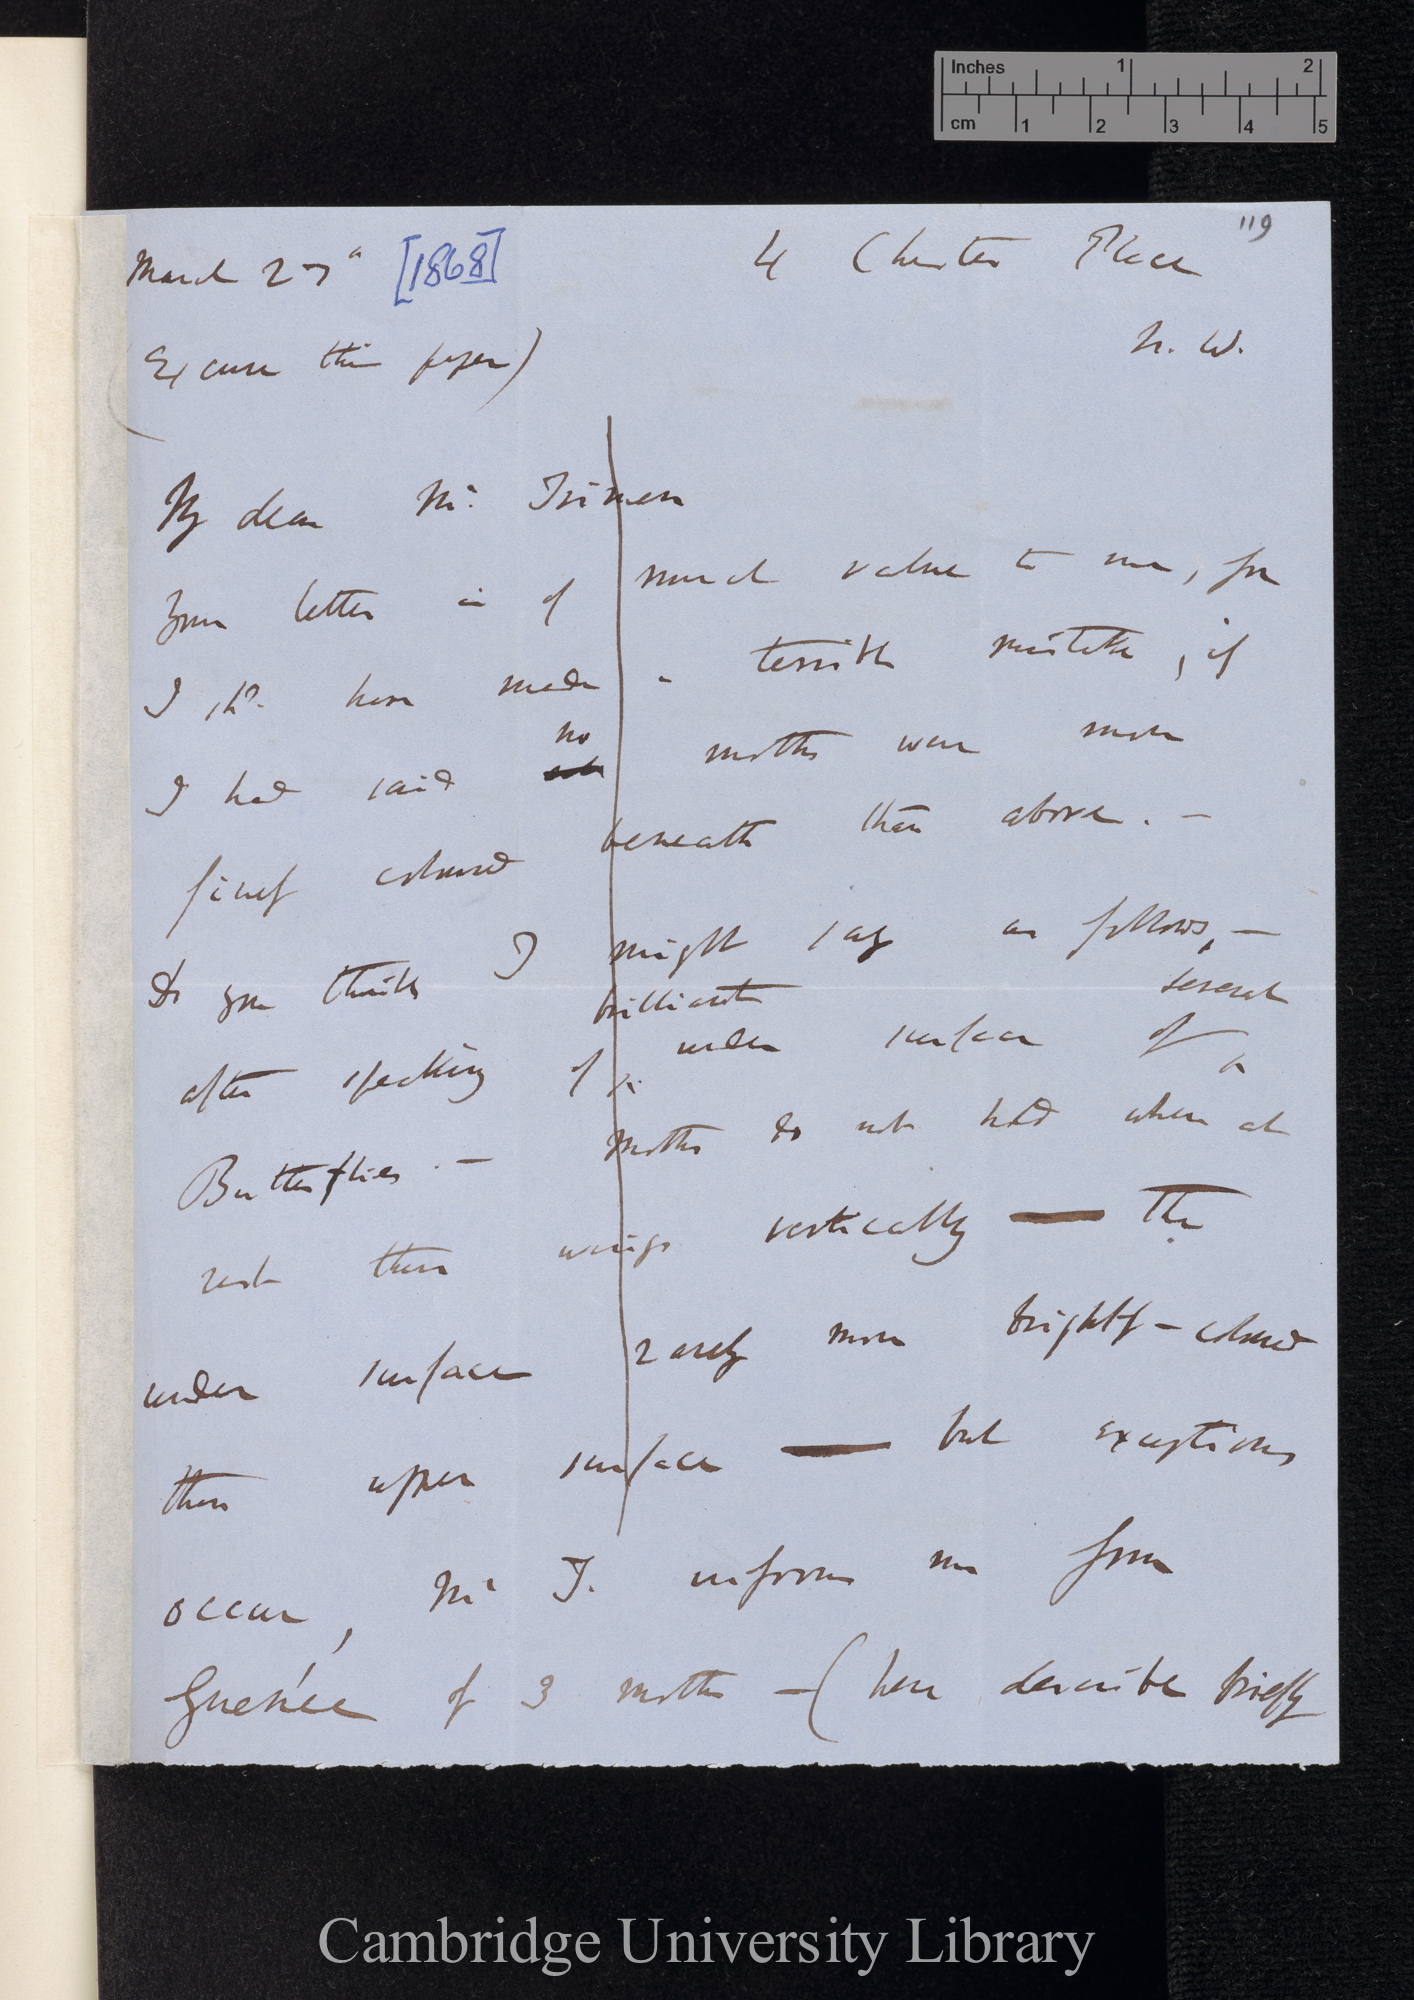 Inches 1 2
cm 1 2 3 4 5
119
March 27th [1868] 4 Chester Place
N. W.
(Excuse this paper)
My dear Mr. Trimen
Your letter is of much value to me, for
I shd. have made a terrible mistake, if
I had said no moths were more
finely coloured beneath than above. —
Do you think I might say as follows, —
after speaking of brilliant under surface of several
Butterflies. — Moths do not hold when at
rest their wings vertically — The
under surface rarely more brightly-coloured
than upper surface — but exceptions
occur, Mr T. informs me from
Guenée of 3 moths — (here describe briefly
Cambridge University Library